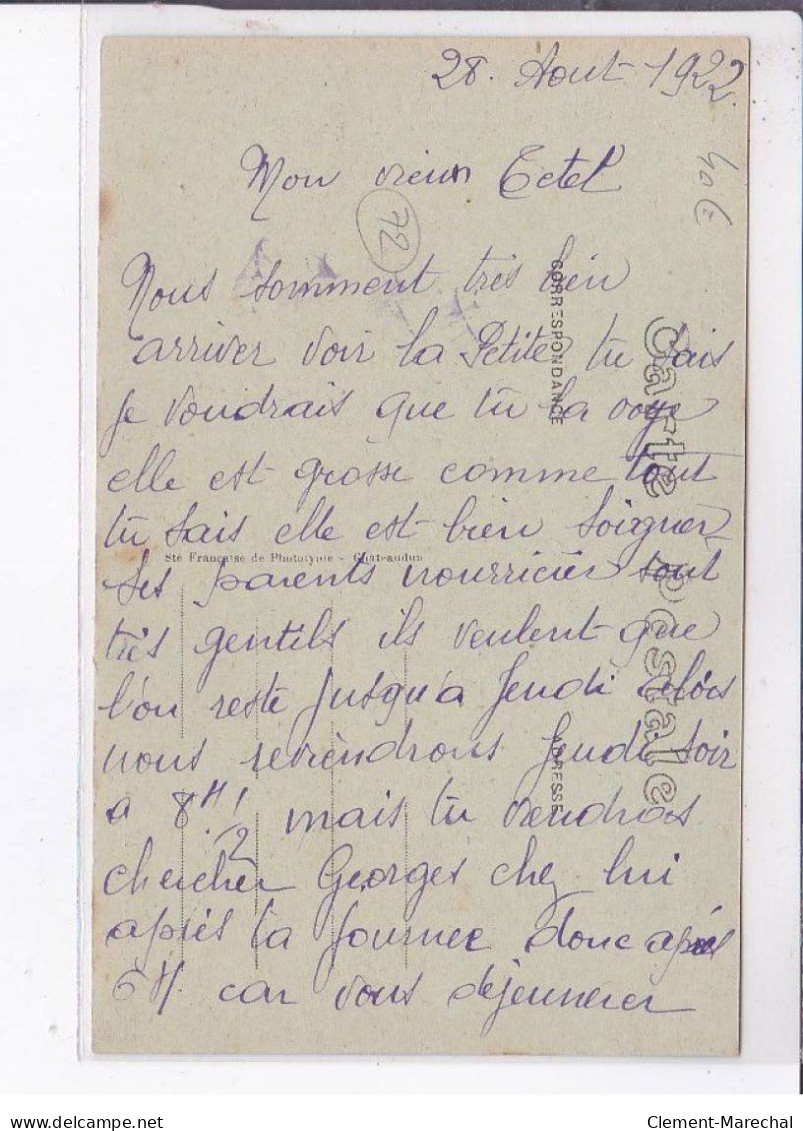 28. Aout 1922.
40€
Mon vieux Tetel
72
Nous somment très bien
arriver voir la Petite tu sais
je voudrais que tu la voye
elle est grosse comme tout
tu sais elle est bien soigner
Sté Française de Phototypie - Chateaudun
ses parents nourricier sont
très gentils ils veulent que
l'on reste jusqu'a Jeudi
nous reviendrons Jeudi soir
a 8H 1/2 mais tu viendras
chercher Georges chez lui
après ta journee donc après
6H. car vous dejeunerer
CORRESPONDANCE
Carte Postale
ADRESSE
Clement-Marechal